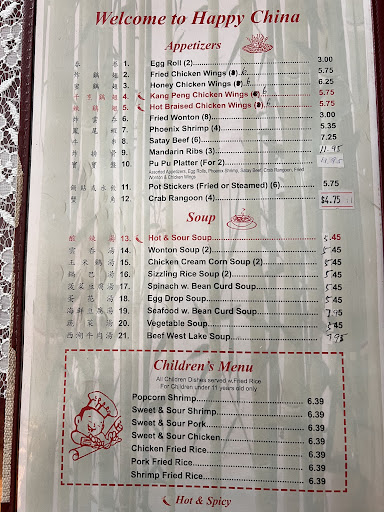 Welcome to Happy China
Appetizers
1. Egg Roll (2) 3.00
2. Fried Chicken Wings (8) 5.75
3. Honey Chicken Wings (8) 6.25
4. Kang Peng Chicken Wings (8) 5.75
5. Hot Braised Chicken Wings (8) 5.75
6. Fried Wonton (8) 3.00
7. Phoenix Shrimp (4) 5.35
8. Satay Beef (6) 7.25
9. Mandarin Ribs 11.95
10. Pu Pu Platter (For 2) 11.95
Assorted Appetizers, Egg Rolls, Phoenix Shrimp, Satay Beef, Crab Rangoon, Fried
Wonton & Chicken Wings
11. Pot Stickers (Fried or Steamed) (6) 5.75
12 Crab Rangoon (4) $4.75
Soup
酸辣湯 13. Hot & Sour Soup .45
雲吞湯 14. Wonton Soup (2) .45
玉米鷄湯 15. Chicken Cream Corn Soup (2) .45
鍋巴湯 16. Sizzling Rice Soup (2) .45
菠菜豆腐湯 17. Spinach w. Bean Curd Soup .45
蛋花湯 18. Egg Drop Soup .45
海鮮豆腐湯 19. Seafood w. Bean Curd Soup 7.95
蔬菜湯 20. Vegetable Soup .45
西湖牛肉湯 21. Beef West Lake Soup 7.95
Children's Menu
All Children Dishes served w.Fried Rice
For Children under 11 years old only
Popcorn Shrimp 6.39
Sweet & Sour Shrimp 6.39
Sweet & Sour Pork 6.39
Sweet & Sour Chicken 6.39
Chicken Fried Rice 6.39
Pork Fried Rice 6.39
Shrimp Fried Rice 6.39
Hot & Spicy